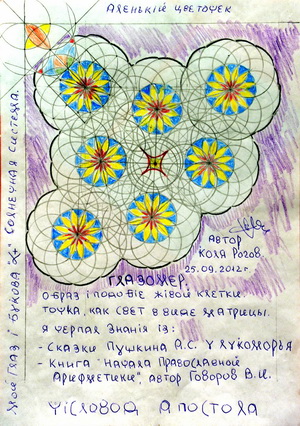 Аленькій цветочек
Мой глаз і букова "Ж" Солнечная система.
Автор
Коля Рогов.
25.09.2012г.
Глазомер.
Образ і подобіе жівой клетки
Точка, как свет в виде матрицы.
Я черпал знанія із:
- Сказки Пушкина А.С. У лукоморья
- Книга "Начала Православной
Арифметики" автор Говоров В.И.
Чісловод Апостола